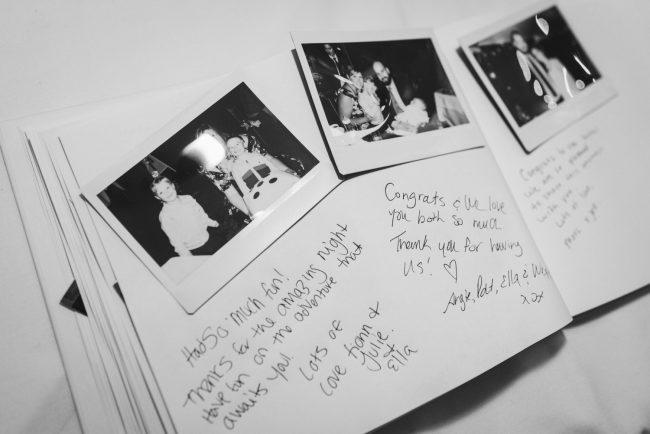 Had so much fun!
Thanks for the amazing night
Have fun on the adventure that
awaits you!
Lots of
love &
Julie.
& Ella
Congrats & We love
you both so much.
Thank you for having
Us! ♡
Angie, Ella &
xox
Congrats to the
We are so
to share
with you
Lots of love